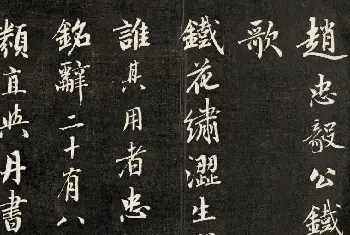 趙忠毅公鐵
歌
鐵花繡澀生
誰其用者忠
銘辭二十有八
類直與丹書